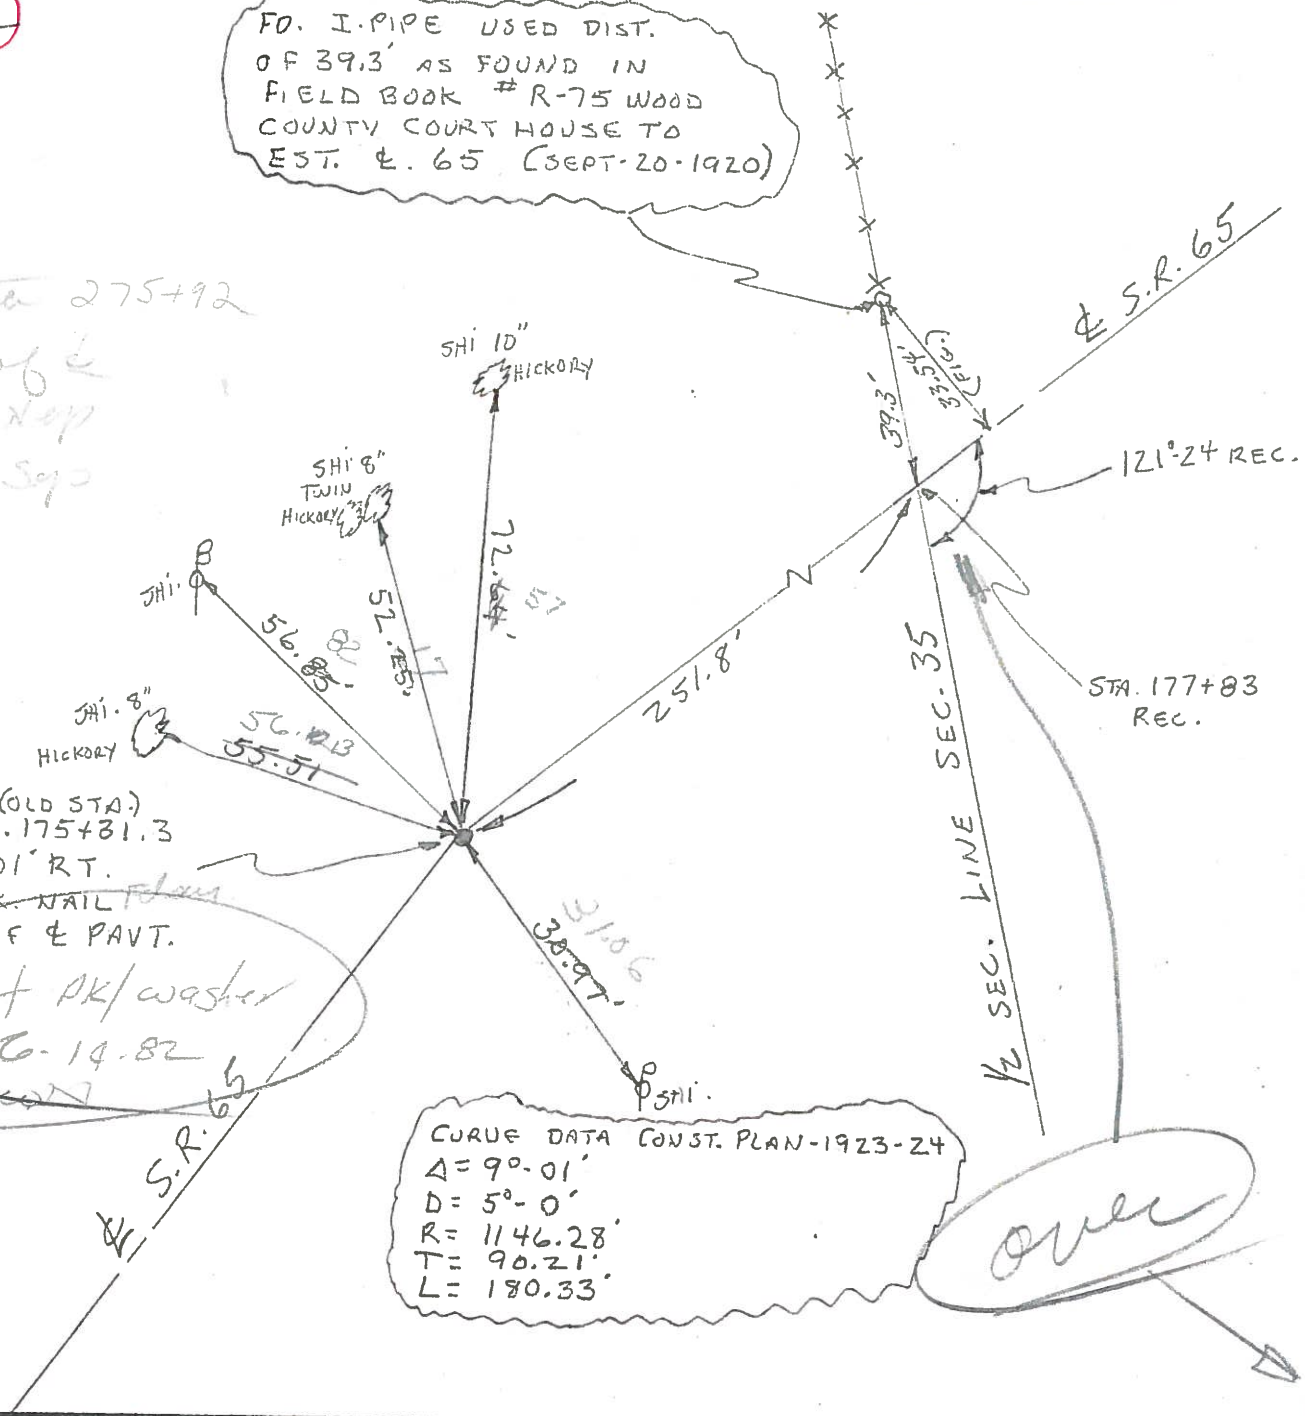 FD. I. PIPE USED DIST.
OF 39.3' AS FOUND IN
FIELD BOOK # R-75 WOOD
COUNTY COURT HOUSE TO
EST. ℄. 65 (SEPT-20-1920)
℄ S.R. 65
275+92
of ℄
SHI 10"
HICKORY
33.54'
(FIG.)
39.3'
121°-24 REC.
SHI 8"
TWIN
HICKORY
72.64'
57
SHI.
56.85'
82
52.25'
17
251.8'
STA. 177+83
REC.
1/2 SEC. LINE SEC. 35
SHI. 8"
HICKORY
56.13
55.51
(OLD STA.)
. 175+31.3
01' RT.
NAIL
F ℄ PAVT.
PK/washer
6-14-82
30.97'
31.06
SHI.
℄ S.R. 65
CURVE DATA CONST. PLAN-1923-24
Δ= 9°-01'
D= 5°-0'
R= 1146.28'
T= 90.21'
L= 180.33'
over